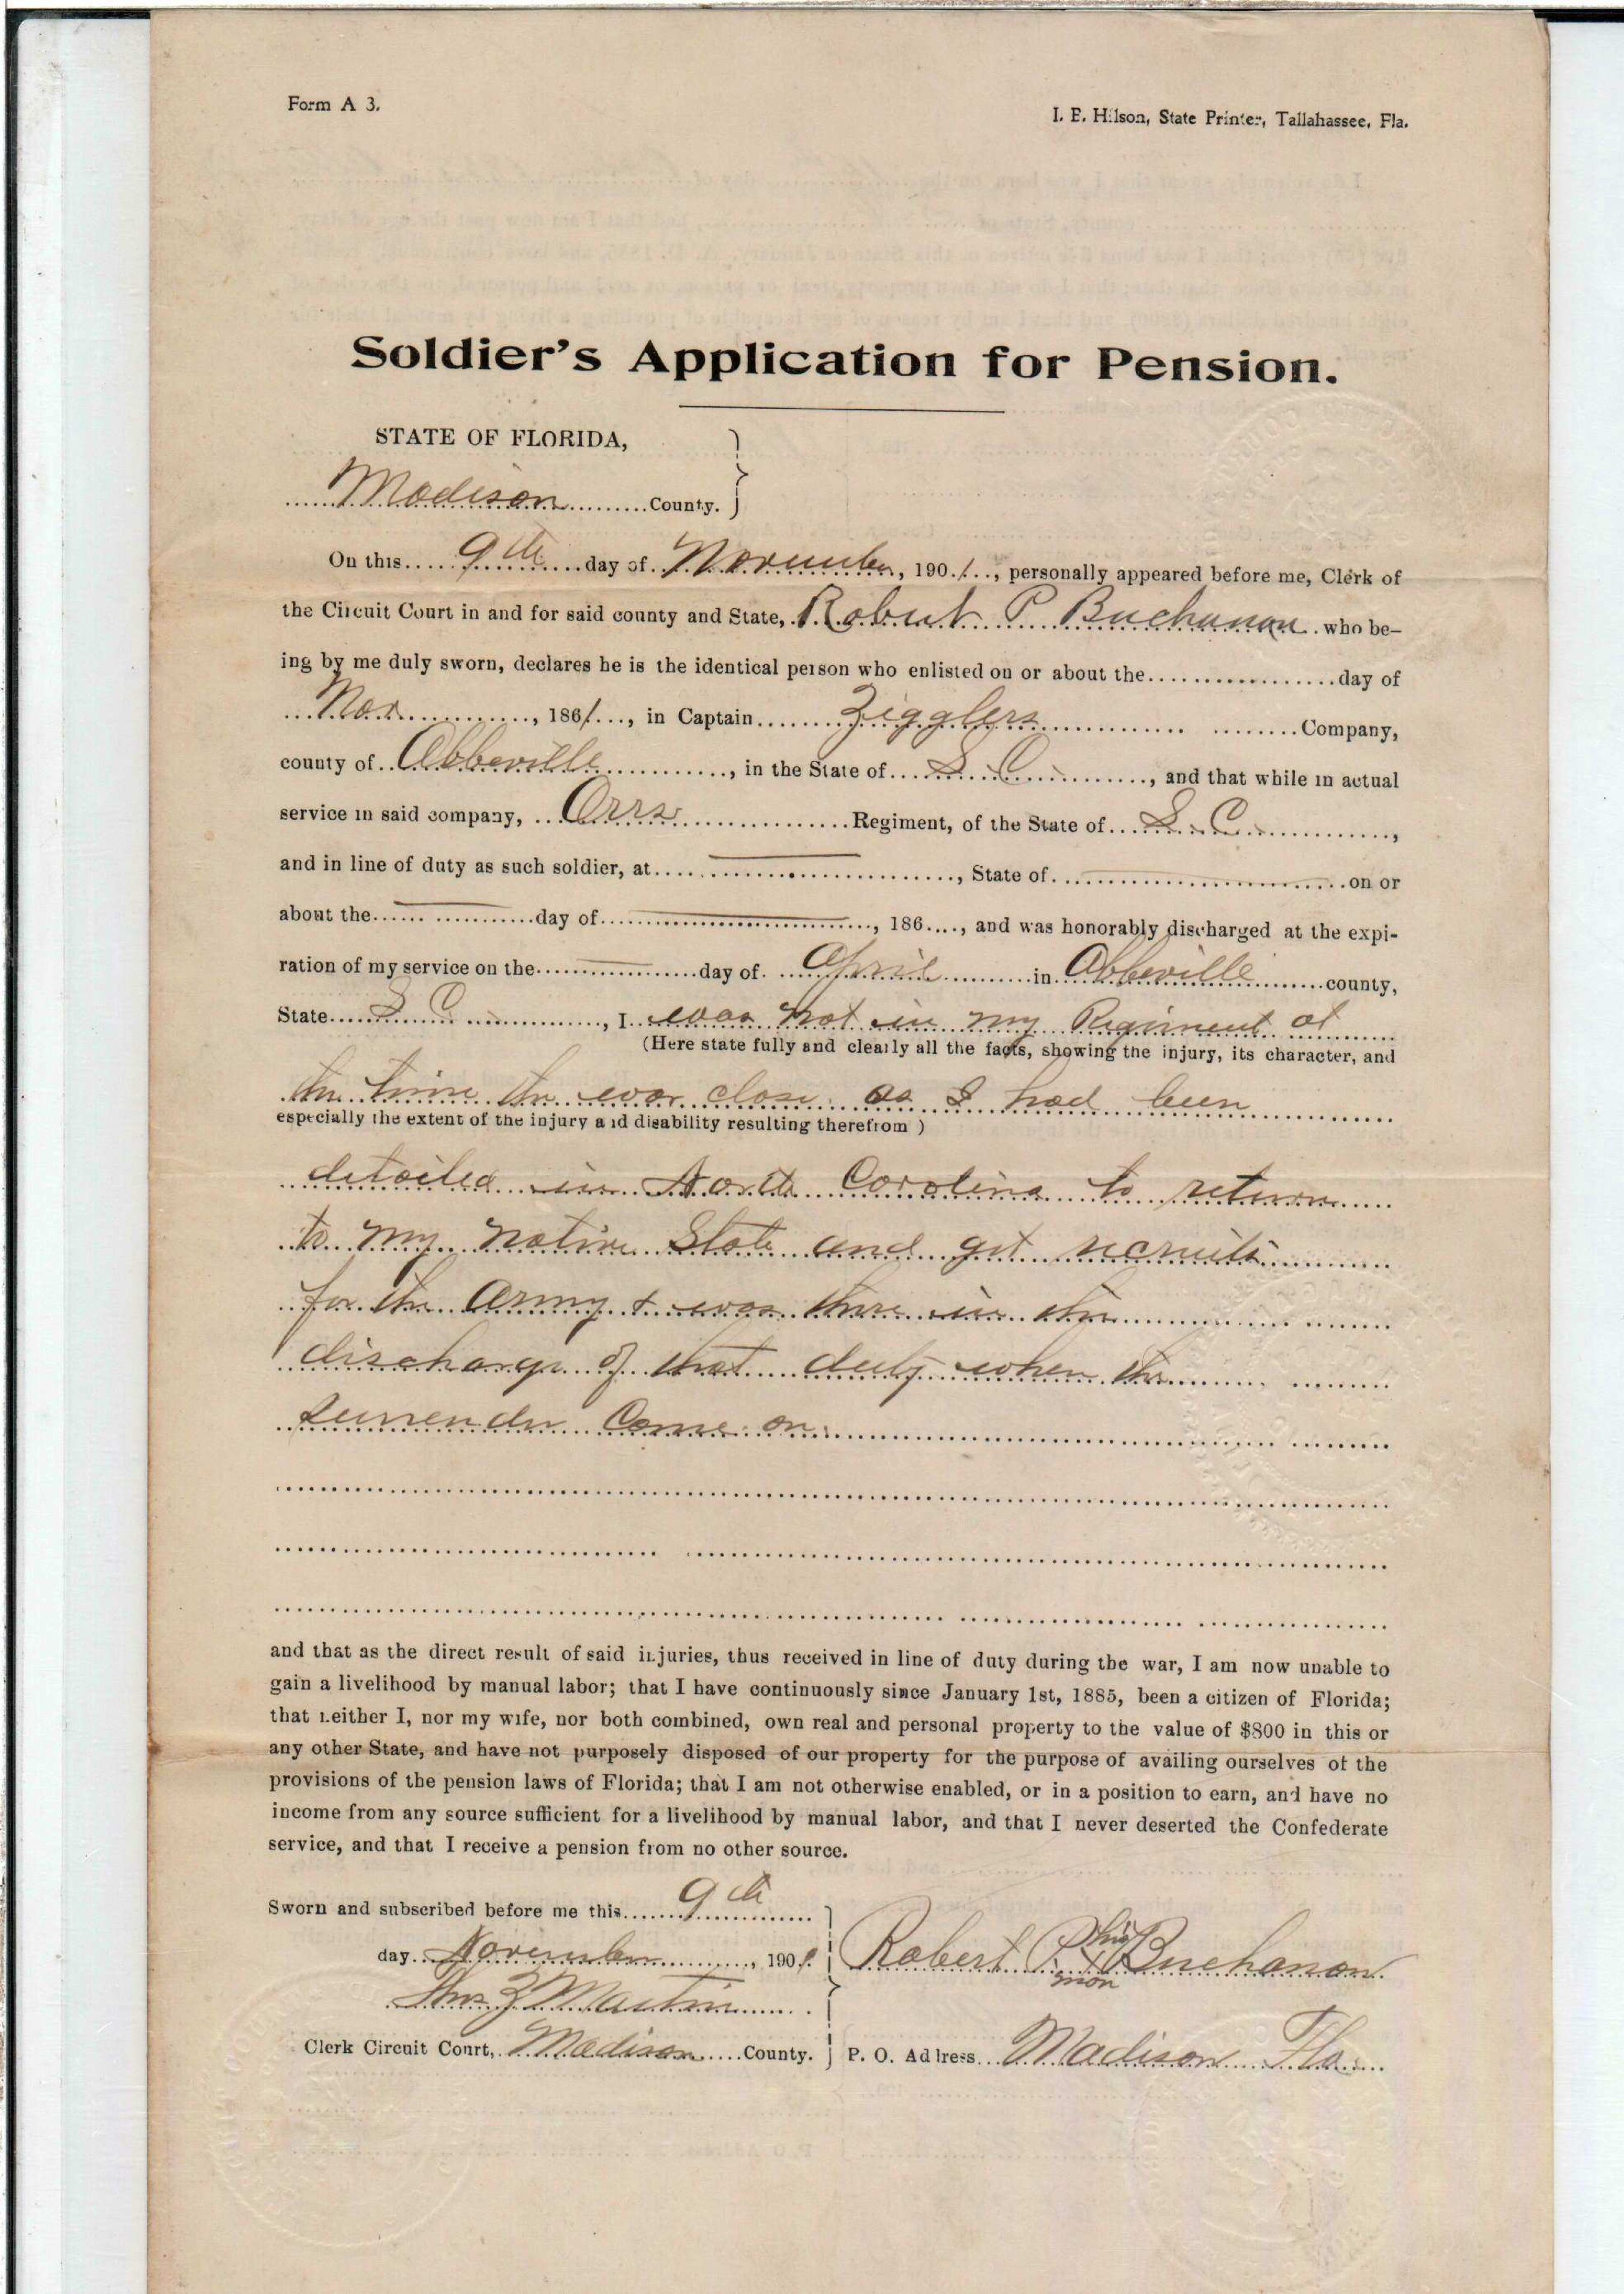 Form A 3.
I. E. Hilson, State Printer, Tallahassee, Fla.
Soldier's Application for Pension.
STATE OF FLORIDA,
Madison County.
On this 9th day of November, 1901, personally appeared before me, Clerk of
the Circuit Court in and for said county and State, Robert P Buchanan who be-
ing by me duly sworn, declares he is the identical person who enlisted on or about the day of
Nov, 1861, in Captain Zigglers Company,
county of Abbeville, in the State of S. C., and that while in actual
service in said company, Orrs Regiment, of the State of S. C.,
and in line of duty as such soldier, at, State of on or
about the day of, 186, and was honorably discharged at the expi-
ration of my service on the day of April in Abbeville county,
State S C, I was not in my Regiment at
(Here state fully and clearly all the facts, showing the injury, its character, and
the time the war close as I had been
especially the extent of the injury and disability resulting therefrom)
detailed in North Carolina to return
to my native State and get recruits
for the Army & was there in the
discharge of that duty when the
surrender Come on
and that as the direct result of said injuries, thus received in line of duty during the war, I am now unable to
gain a livelihood by manual labor; that I have continuously since January 1st, 1885, been a citizen of Florida;
that neither I, nor my wife, nor both combined, own real and personal property to the value of $800 in this or
any other State, and have not purposely disposed of our property for the purpose of availing ourselves of the
provisions of the pension laws of Florida; that I am not otherwise enabled, or in a position to earn, and have no
income from any source sufficient for a livelihood by manual labor, and that I never deserted the Confederate
service, and that I receive a pension from no other source.
Sworn and subscribed before me this 9th
day November, 1901
Robert P. his X mark Buchanan
Martin
Clerk Circuit Court, Madison County.
P. O. Address Madison Fla